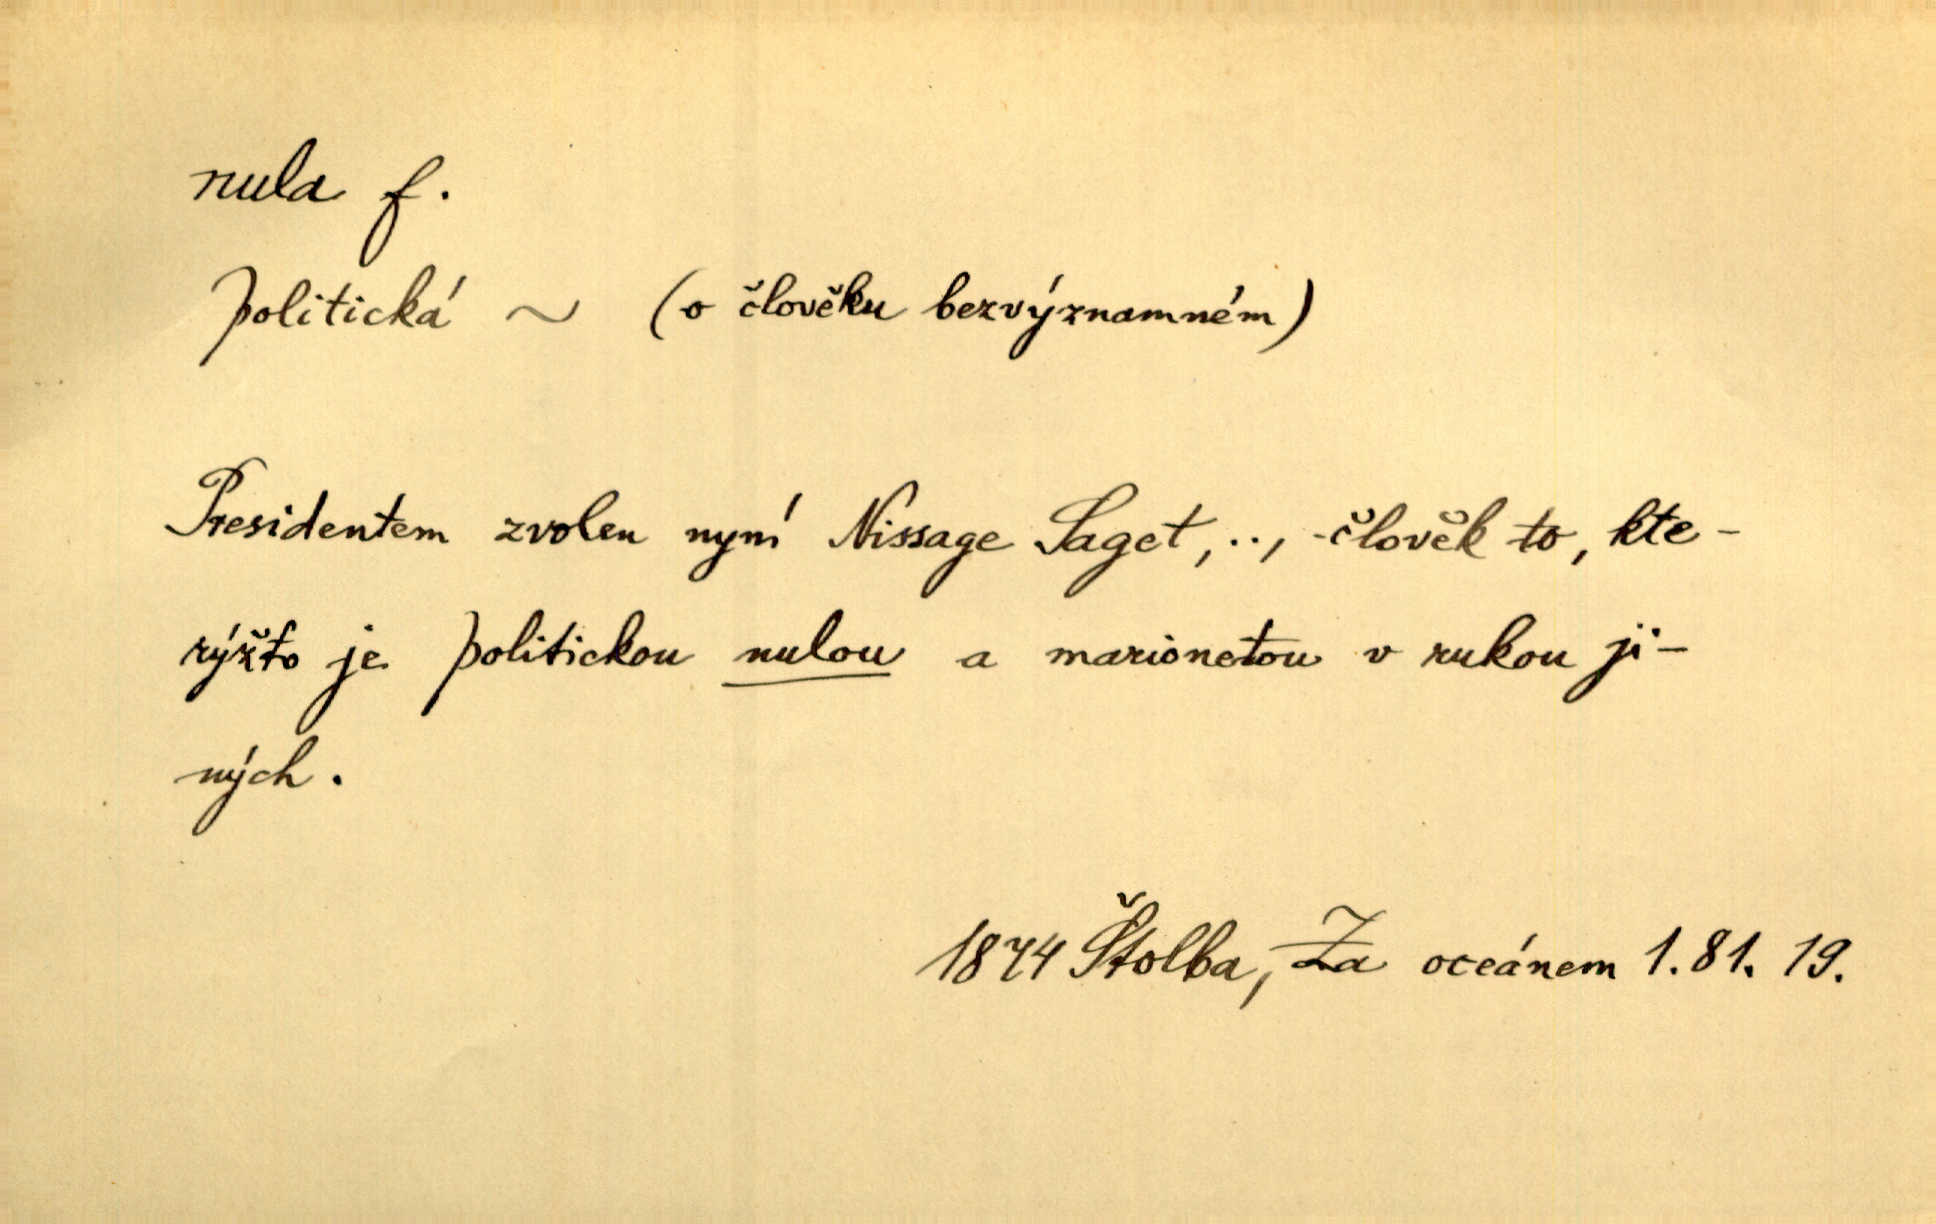 nula f.
politická ~ (o člověku bezvýznamném)
Presidentem zvolen nyní Nissage Saget, .., člověk to, kte-
rýžto je politickou nulou a marionetou v rukou ji-
ných.
1874 Štolba, Za oceánem 1. 81. 19.